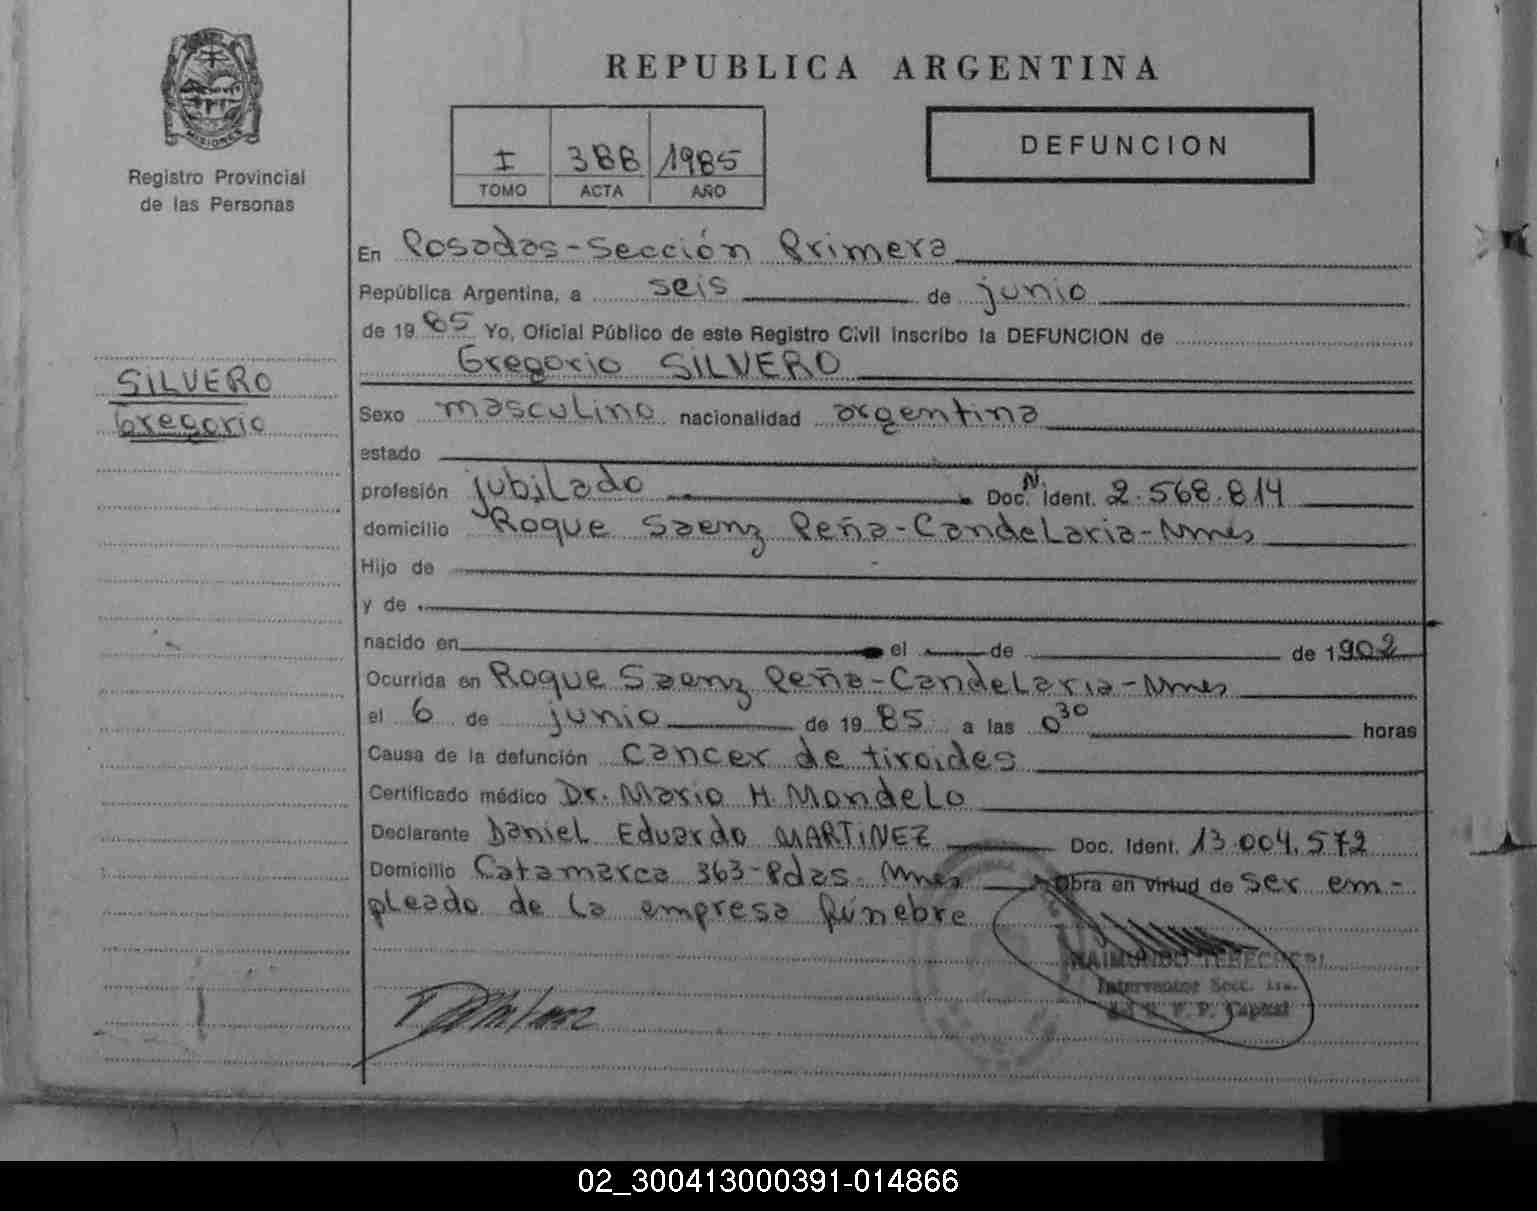 MISIONES
Registro Provincial
de las Personas
REPUBLICA ARGENTINA
I 388 1985
TOMO ACTA AÑO
DEFUNCION
En Posadas-Sección Primera
República Argentina, a seis de junio
de 1985 Yo, Oficial Público de este Registro Civil inscribo la DEFUNCION de
Gregorio SILVERO
SILVERO
Gregorio
Sexo masculino nacionalidad argentina
estado
profesión jubilado Doc. N Ident. 2.568.814
domicilio Roque Saenz Peña-Candelaria-Mnes
Hijo de
y de
nacido en el de de 1902
Ocurrida en Roque Saenz Peña-Candelaria-Mnes
el 6 de junio de 1985 a las 0 30 horas
Causa de la defunción cancer de tiroides
Certificado médico Dr. Mario H. Mondelo
Declarante Daniel Eduardo MARTINEZ Doc. Ident. 13.004.572
Domicilio Catamarca 363-Pdas. Mnes Obra en virtud de ser em-
pleado de la empresa fúnebre
RAIMUNDO
Interventor Secc. 1ra.
Capital
02_300413000391-014866